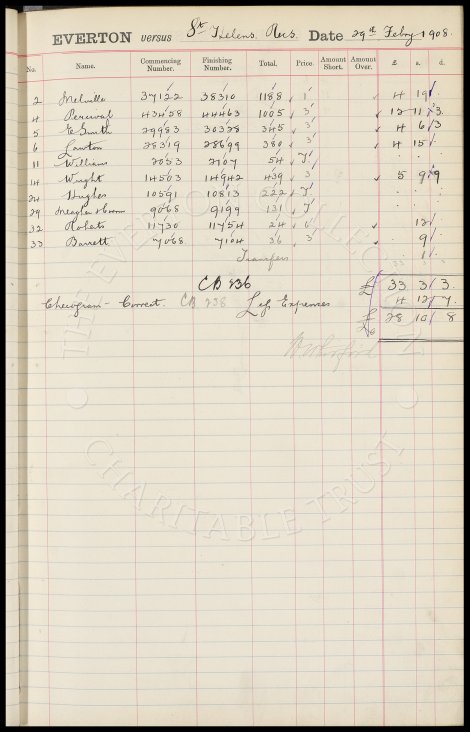 EVERTON versus St Helens Recs. Date 29th Febry 1908.
No. Name. Commencing Number. Finishing Number. Total. Price. Amount Short. Amount Over. £ s. d.
2 Melville 37122 38310 1188 1' 4 19
4 Percival 43458 44463 1005 3' 12 11 3
5 E Smith 29983 30328 345 3' 4 6 3
6 Lawton 28319 28699 380 3' 4 15
11 Williams 2053 2107 54 J'
14 Wright 14503 14942 439 3 5 9 9
24 Hughes 10591 10813 222 J'
29 9068 9199 131 J'
32 Roberts 11730 11754 24 6' 12
33 Barrett 7068 7104 36 3' 9
Transfers 1
CB 236 £ 33 3 3
Correct. CB 238 Less Expenses 4 12 7
£ 28 10 8
THE EVERTON COLLECTION
CHARITABLE TRUST